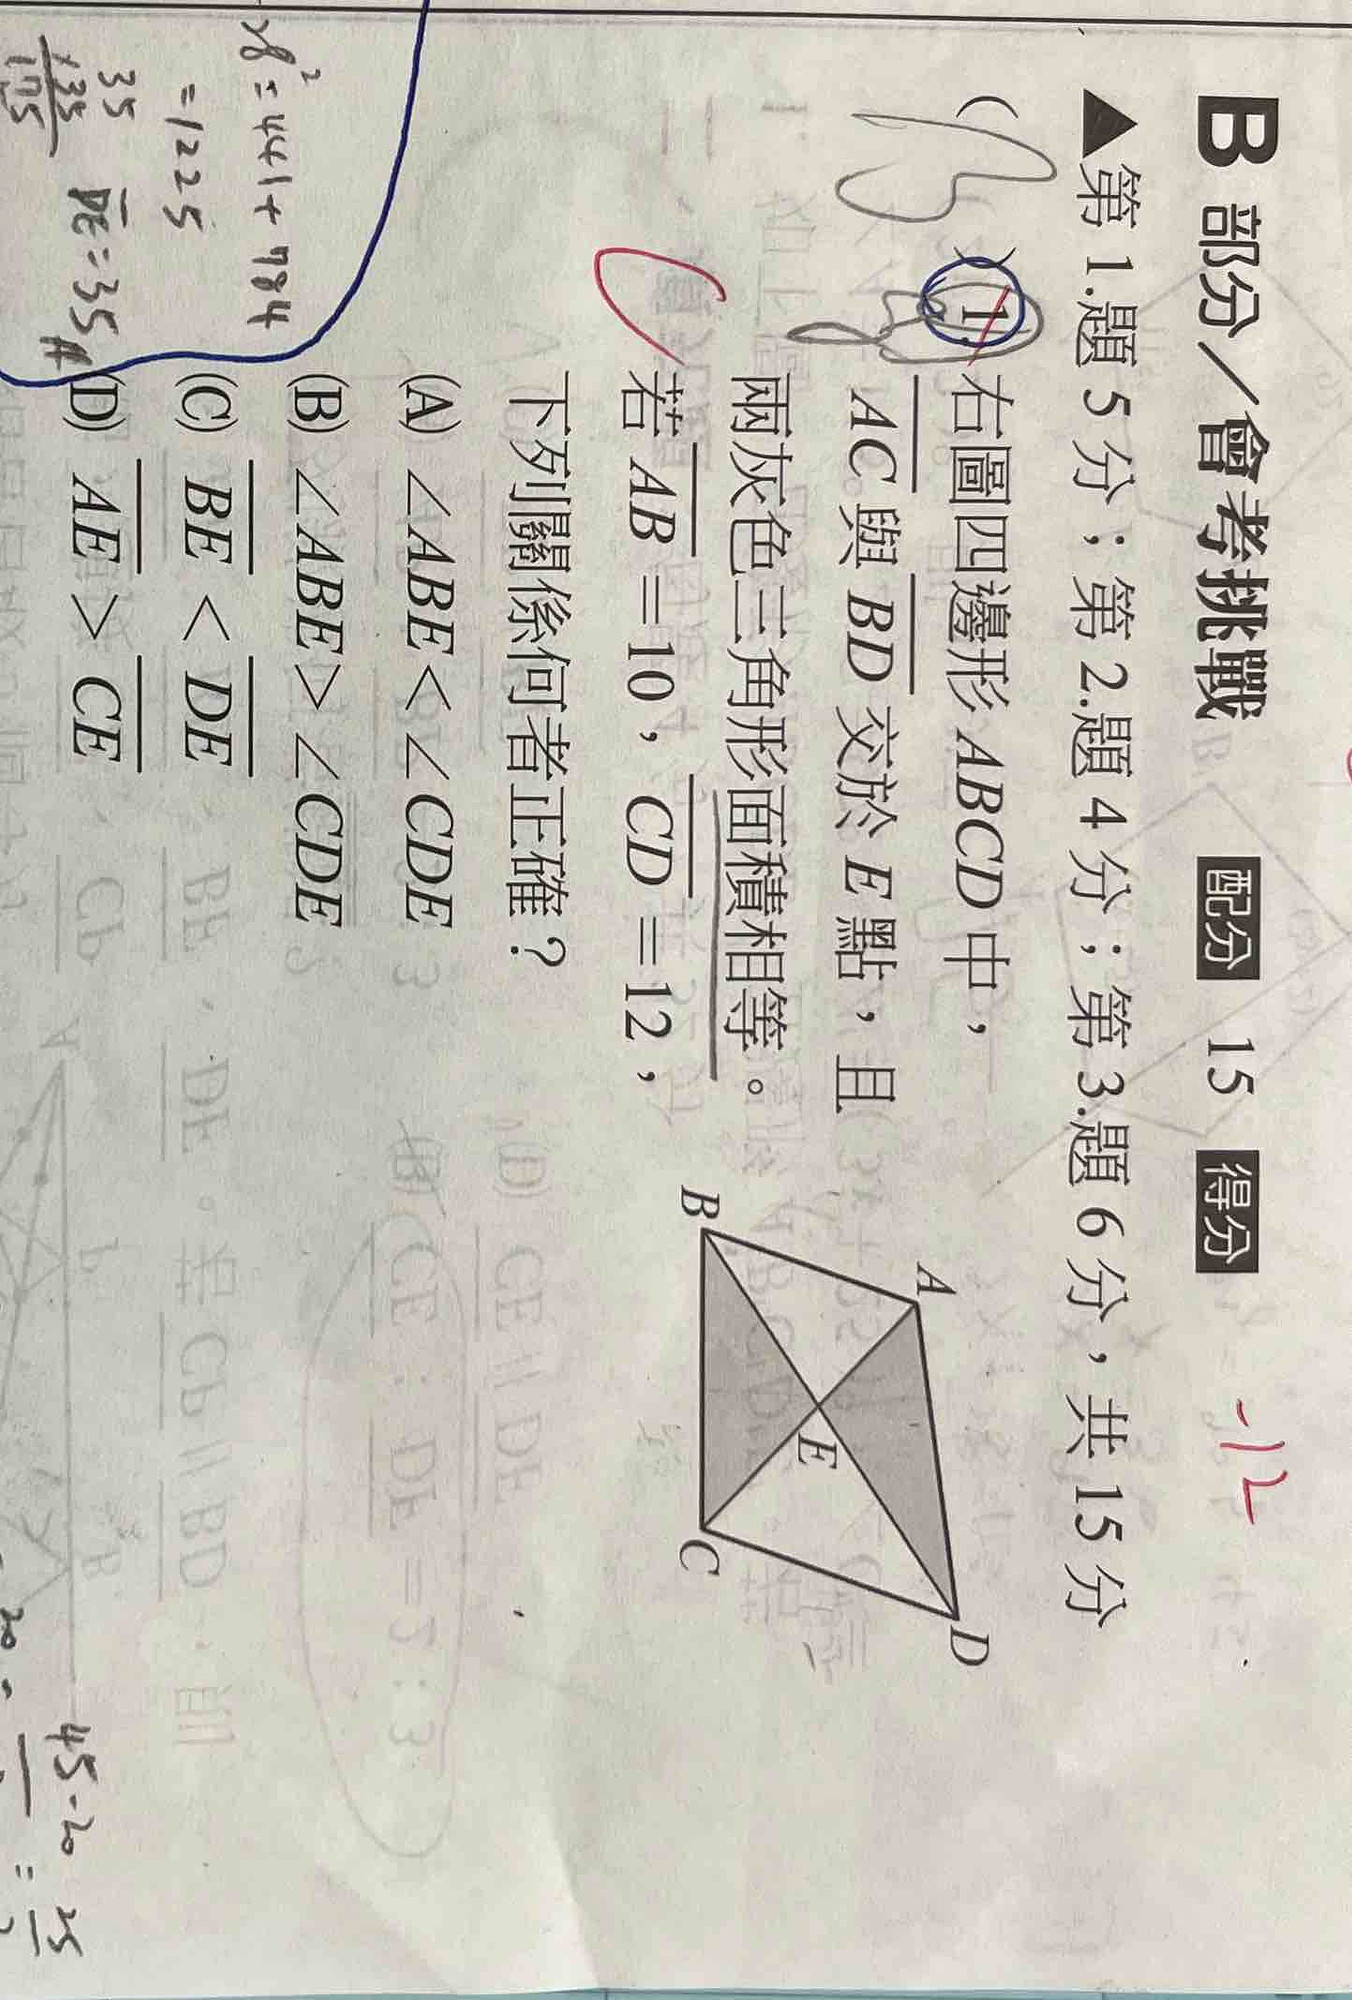 B 部分／會考挑戰 配分 15 得分 -12
▲第 1.題 5 分；第 2.題 4 分；第 3.題 6 分，共 15 分
( B ) 1. 右圖四邊形 ABCD 中，
AC 與 BD 交於 E 點，且
兩灰色三角形面積相等。
若 AB = 10，CD = 12，
下列關係何者正確？
(A) ∠ABE < ∠CDE
(B) ∠ABE > ∠CDE
(C) BE < DE
(D) AE > CE
A
B
C
D
E
= 441 + 784
= 1225
35
×35
175
DE = 35 #
45 - 20 = 25
20